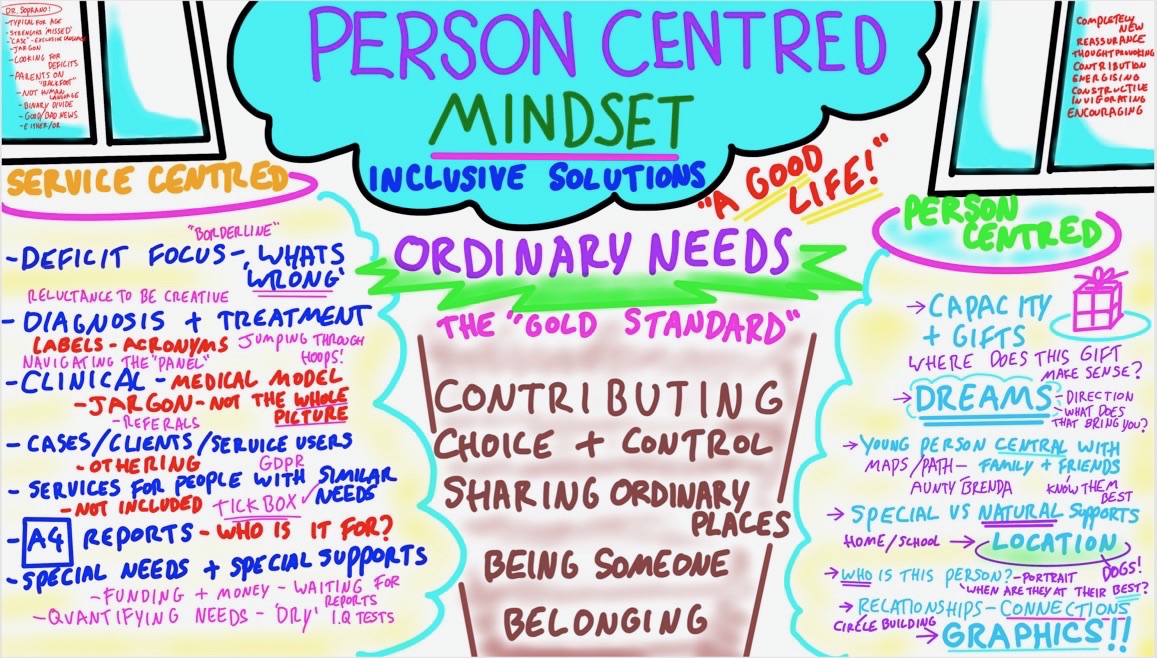 DR. SOPRANO!
-TYPICAL FOR AGE
-STRENGTHS 'MISSED'
-"CASE"-EXCLUSIVE LANGUAGE
-JARGON
-LOOKING FOR
DEFICITS
-PARENTS ON
"BACKFOOT"
-NOT HUMAN
LANGUAGE
-BINARY DIVIDE
-GOOD/BAD NEWS
-EITHER/OR
PERSON CENTRED
MINDSET
INCLUSIVE SOLUTIONS
COMPLETELY
NEW
REASSURANCE
THOUGHT PROVOKING
CONTRIBUTION
ENERGISING
CONSTRUCTIVE
INVIGORATING
ENCOURAGING
SERVICE CENTRED
"BORDERLINE"
-DEFICIT FOCUS-'WHATS
WRONG'
RELUCTANCE TO BE CREATIVE
-DIAGNOSIS + TREATMENT
LABELS-ACRONYMS JUMPING THROUGH
HOOPS!
NAVIGATING THE "PANEL"
-CLINICAL-MEDICAL MODEL
-JARGON-NOT THE WHOLE
PICTURE
-REFERALS
-CASES/CLIENTS/SERVICE USERS
-OTHERING GDPR
-SERVICES FOR PEOPLE WITH SIMILAR
NEEDS
-NOT INCLUDED TICK BOX ✓
-A4 REPORTS-WHO IS IT FOR?
-SPECIAL NEEDS + SPECIAL SUPPORTS
-FUNDING + MONEY-WAITING FOR
REPORTS
-QUANTIFYING NEEDS-'DRY' I.Q TESTS
"A GOOD
LIFE!"
ORDINARY NEEDS
THE "GOLD STANDARD"
CONTRIBUTING
CHOICE + CONTROL
SHARING ORDINARY
PLACES
BEING SOMEONE
BELONGING
PERSON
CENTRED
→CAPACITY
+ GIFTS
WHERE DOES THIS GIFT
MAKE SENSE?
→DREAMS-DIRECTION
-WHAT DOES
THAT BRING YOU?
→YOUNG PERSON CENTRAL WITH
MAPS/PATH-FAMILY + FRIENDS
AUNTY BRENDA KNOW THEM
BEST
→SPECIAL VS NATURAL SUPPORTS
HOME/SCHOOL→LOCATION
DOGS!
→WHO IS THIS PERSON?-PORTRAIT
WHEN ARE THEY AT THEIR BEST?
→RELATIONSHIPS-CONNECTIONS
CIRCLE BUILDING
→GRAPHICS!!